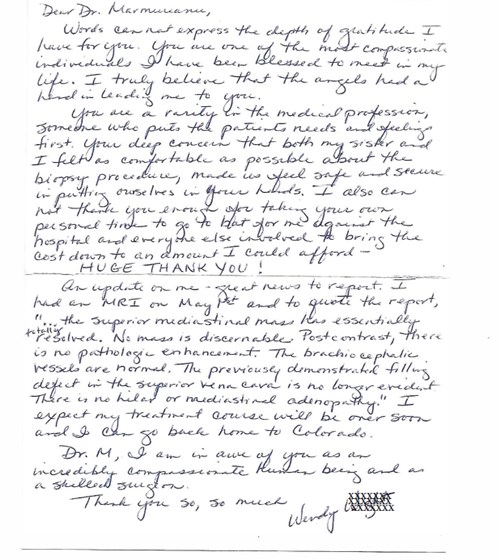 Dear Dr. Marmureanu,
Words can not express the depth of gratitude I
have for you. You are one of the most compassionate
individuals I have been blessed to meet in my
life. I truly believe that the angels had a
hand in leading me to you.
You are a rarity in the medical profession,
someone who puts the patients needs and feelings
first. Your deep concern that both my sister and
I felt as comfortable as possible about the
biopsy procedure, made us feel safe and secure
in putting ourselves in your hands. I also can
not thank you enough for taking your own
personal time to go to bat for me against the
hospital and everyone else involved to bring the
cost down to an amount I could afford -
HUGE THANK YOU!
An update on me - great news to report. I
had an MRI on May 1st and to quote the report,
"... the superior mediastinal mass has essentially
totally resolved. No mass is discernable. Postcontrast, there
is no pathologic enhancement. The brachiocephalic
vessels are normal. The previously demonstrated filling
defect in the superior vena cava is no longer evident
There is no hilar or mediastinal adenopathy." I
expect my treatment course will be over soon
and I can go back home to Colorado.
Dr. M, I am in awe of you as an
incredibly compassionate human being and as
a skilled surgeon.
Thank you so, so much
Wendy